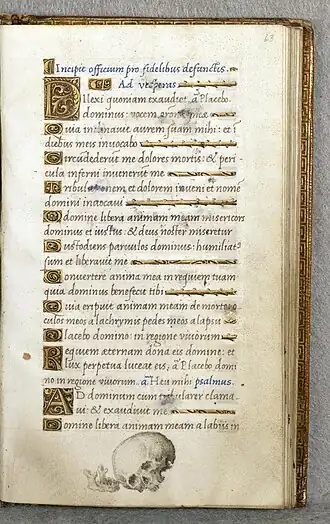 63
Incipit officium pro fidelibus defunctis.
Ad vesperas
Dilexi quoniam exaudiet, a Placebo.
dominus: vocem orationis meae
Quia inclinavit aurem suam mihi: et i
diebus meis invocabo
Circudederut me dolores mortis: & peri
cula inferni invenerut me
Tribulationem et dolorem inveni et nome
domini invocavi
O domine libera animam meam misericors
dominus et iustus: & deus noster miseretur
Custodiens parvulos dominus: humiliat9
sum et liberavit me
Convertere anima mea in requiem tuam
quia dominus benefecit tibi
Quia eripuit animam meam de morte: o
culos meos a lachrymis pedes meos a lapsu
Placebo domino: in regione vivorum
Requiem aeternam dona eis domine: et
lux perpetua luceat eis, a Placebo domi
no in regione vivorum. a Heu mihi psalmus.
AD dominum cum tribularer clama
vi: & exaudivit me
Domine libera animam meam a labiis in